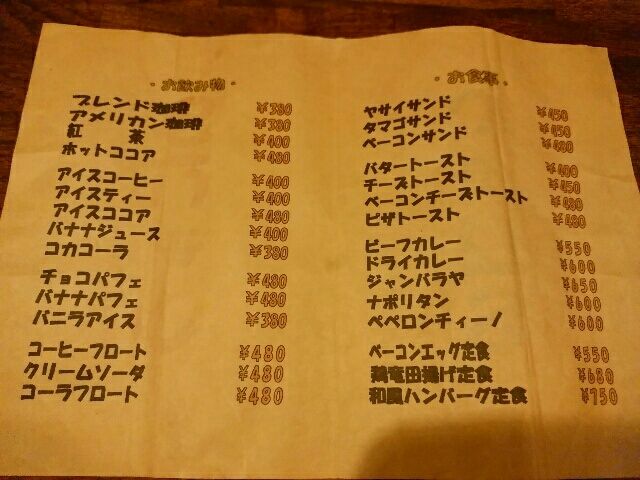 ・お飲み物・
ブレンド珈琲 ¥380
アメリカン珈琲 ¥380
紅 茶 ¥400
ホットココア ¥480
アイスコーヒー ¥400
アイスティー ¥400
アイスココア ¥480
バナナジュース ¥400
コカコーラ ¥380
チョコパフェ ¥480
バナナパフェ ¥480
バニラアイス ¥380
コーヒーフロート ¥480
クリームソーダ ¥480
コーラフロート ¥480
・お食事・
ヤサイサンド ¥450
タマゴサンド ¥450
ベーコンサンド ¥480
バタートースト ¥400
チーズトースト ¥450
ベーコンチーズトースト ¥480
ピザトースト ¥480
ビーフカレー ¥550
ドライカレー ¥600
ジャンバラヤ ¥650
ナポリタン ¥600
ペペロンチィーノ ¥600
ベーコンエッグ定食 ¥550
鶏竜田揚げ定食 ¥680
和風ハンバーグ定食 ¥750